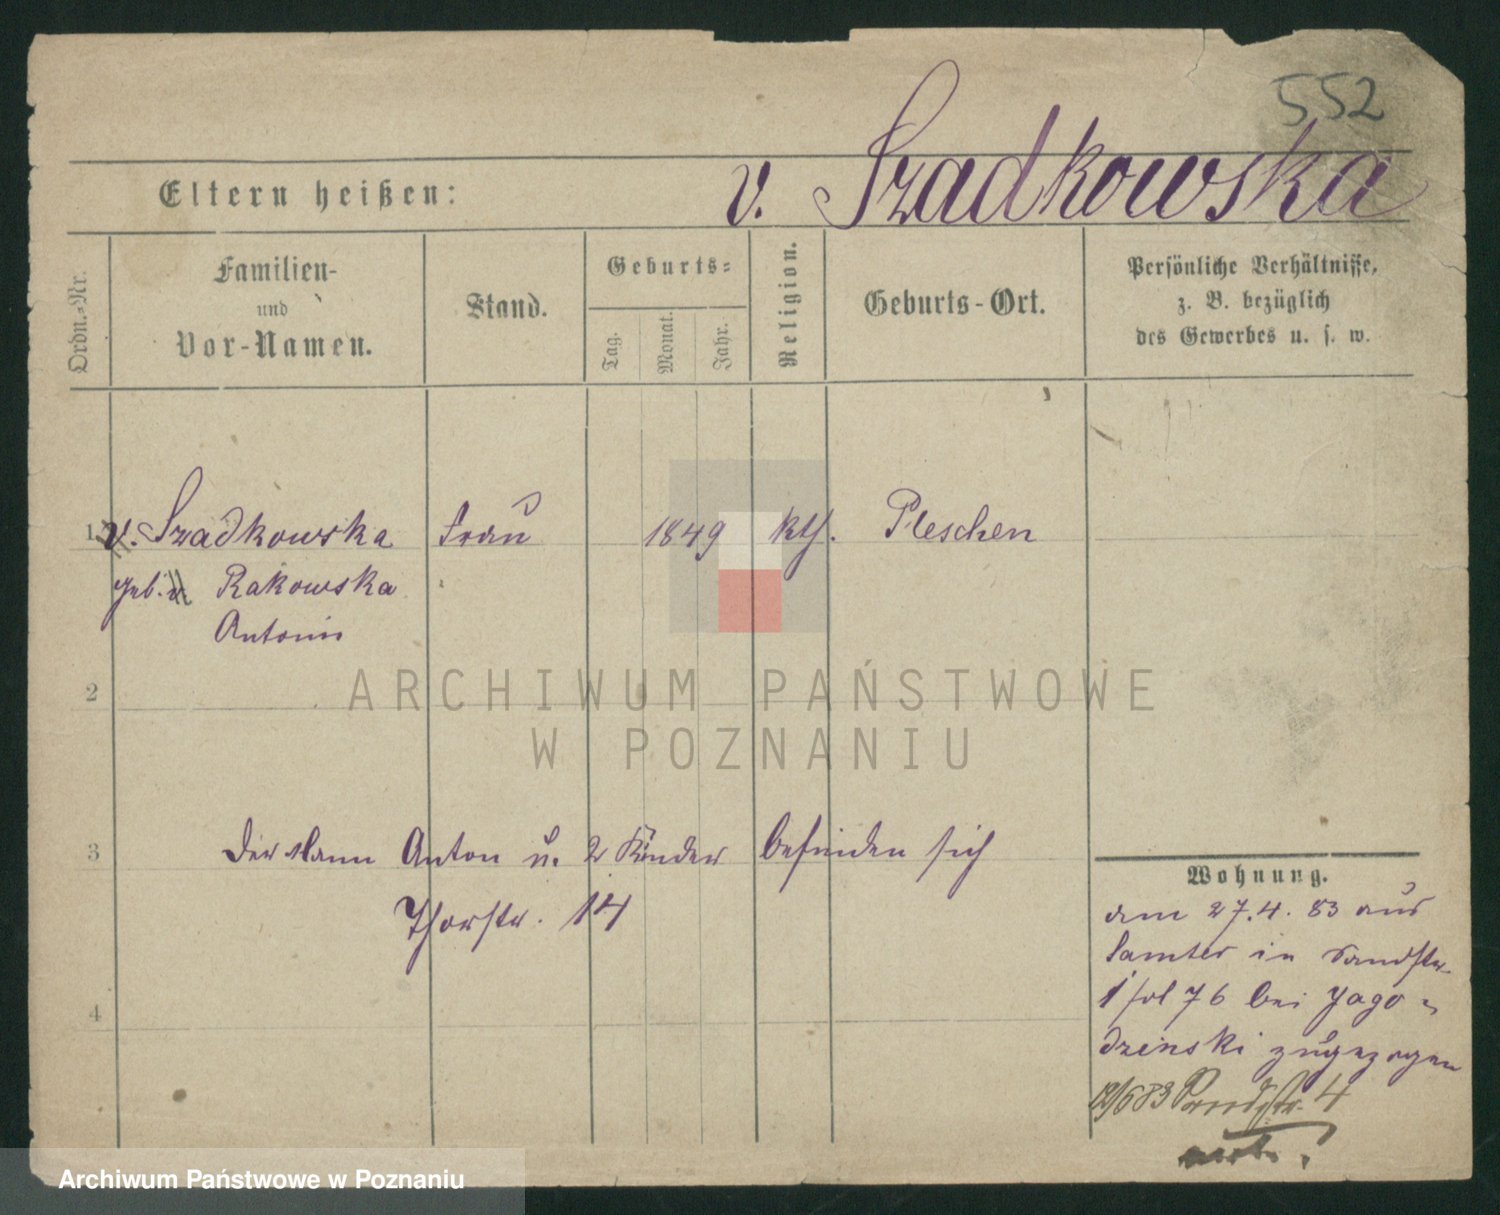 552
v. Szadkowska
Eltern heißen:
Ordn.-Nr.
Familien-
und
Vor-Namen.
Stand.
Geburts-
Tag.
Monat.
Jahr.
Religion.
Geburts-Ort.
Persönliche Verhältnisse,
z. B. bezüglich
des Gewerbes u. s. w.
1 v. Szadkowska Frau 1849 kth. Pleschen
geb. v. Rakowska
Antonie
2
3 Der Mann Anton u. 2 Kinder befinden sich
Thorstr. 14
4
Wohnung.
am 27.4.83 aus
Samter in Sandstr.
1 fol 76 bei Jago-
dzinski zugezogen
12/6 83 4
ARCHIWUM PAŃSTWOWE
W POZNANIU
Archiwum Państwowe w Poznaniu